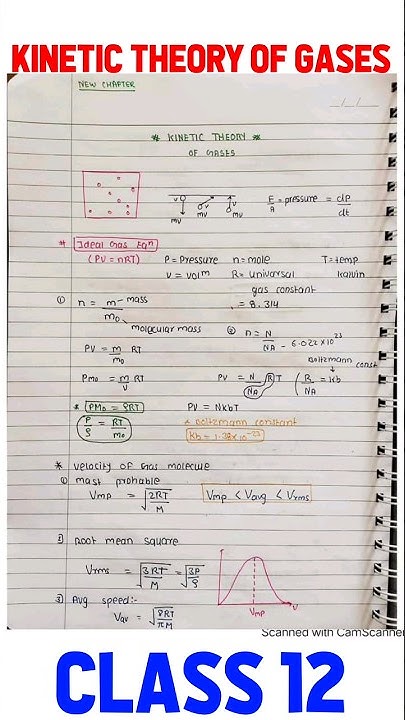 KINETIC THEORY OF GASES
NEW CHAPTER
* KINETIC THEORY *
OF GASES
F/A = pressure = dP/dt
mv mv mv
* Ideal Gas Eqⁿ
(PV = nRT) P = Pressure n = mole T = temp
V = volᵐ R = universal kalvin
gas constant
= 8.314
① n = m/m₀ - mass
molecular mass
② n = N/NA - 6.022×10²³
Boltzmann const
PV = m/m₀ RT
PM₀ = m/V RT PV = N/NA RT (R/NA = kb
* PM₀ = ρRT PV = NkbT
P/ρ = RT/m₀ * Boltzmann constant
kb = 1.38×10⁻²³
* velocity of Gas molecule
① mast probable
Vmp = √2RT/M Vmp < Vavg < Vrms
2) Root mean square
Vrms = √3RT/M = √3P/ρ
3) Avg speed:-
Vav = √8RT/πM
Vmp V
Scanned with CamScanner
CLASS 12